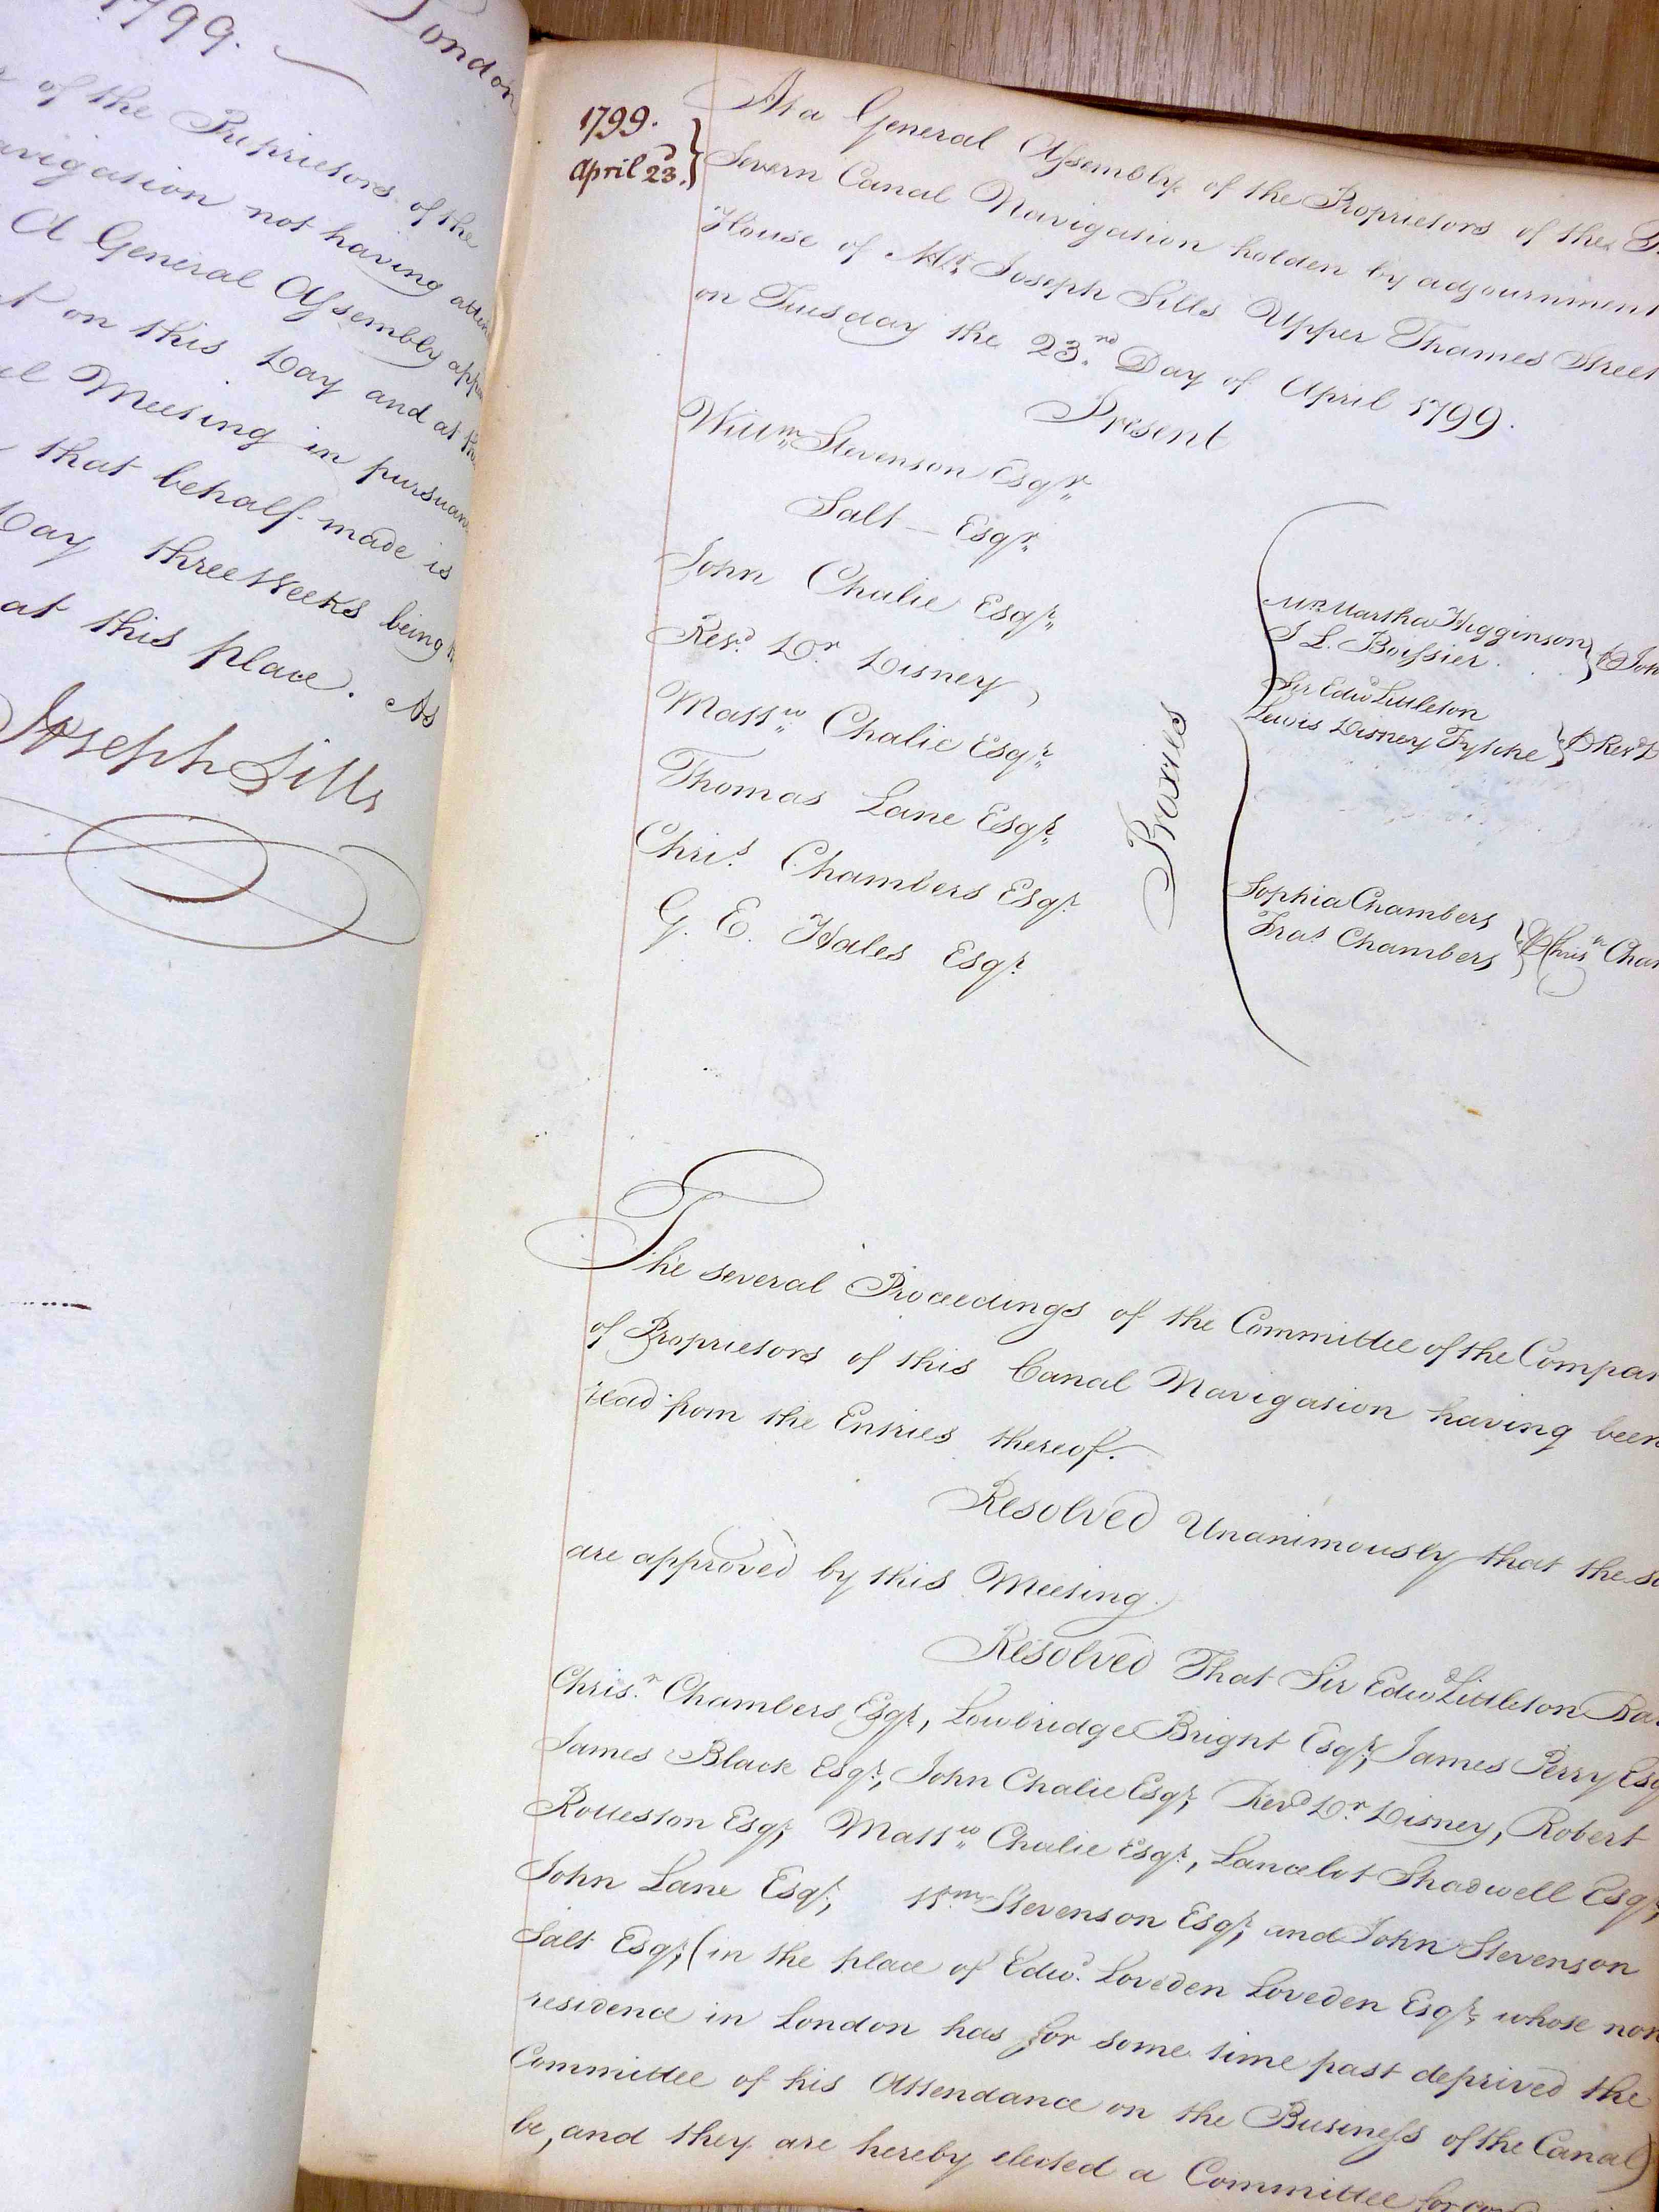 1799. London
of the Proprietors of the
not having
A General Assembly
on this Day and at
Meeting in
that behalf made is
Day three Weeks being
at this place. As
Joseph Sills
1799.
April 23.
At a General Assembly of the Proprietors of the
Severn Canal Navigation holden by adjournment
House of Mr. Joseph Sills Upper Thames Street
on Tuesday the 23.rd Day of April 1799.
Present
Willm. Stevenson Esqr.
Salt — Esqr.
John Chalie Esqr.
Revd. Dr. Disney
Mattw. Chalie Esqr.
Thomas Lane Esqr.
Chris. Chambers Esqr.
G. E. Hales Esqr.
Proxies
Mrs Martha Higginson
J L. Boissier.
Sir Edwd Littleton
Lewis Disney Fytche
Sophia Chambers
Fras Chambers
The several Proceedings of the Committee of the
of Proprietors of this Canal Navigation having been
read from the Entries thereof.
Resolved Unanimously that the
are approved by this Meeting.
Resolved That Sir Edwd Littleton
Chrisr. Chambers Esqr., Lowbridge Bright Esqr., James Perry
James Black Esqr., John Chalie Esqr., Revd Dr. Disney, Robert
Rolleston Esqr., Mattw. Chalie Esqr., Lancelot Shadwell Esqr.,
John Lane Esqr., Wm. Stevenson Esqr. and John Stevenson
Salt Esqr. (in the place of Edwd. Loveden Loveden Esqr. whose non
residence in London has for some time past deprived the
Committee of his Attendance on the Business of the Canal)
be, and they are hereby elected a Committee for